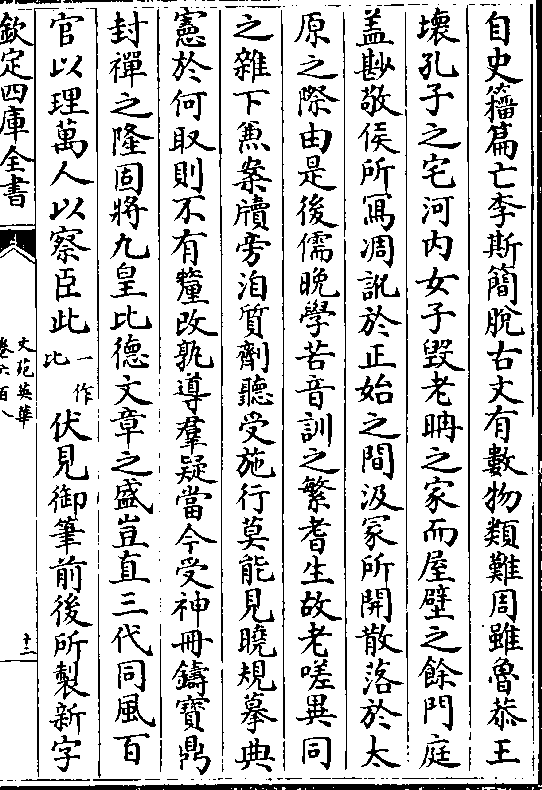 自史籀篇亡李斯簡脫古文有數物類難周雖魯恭王
壞孔子之宅河内女子毀老聃之家而屋壁之餘門庭
盖尠敬侯所冩凋訛於正始之間汲冢所開散落於太
原之際由是後儒晚學苦音訓之繁耆生故老嗟異同
之雜下焦案牘旁洎質劑聽受施行莫能見曉規摹典
憲於何取則不有釐改孰導羣疑當今受神冊鑄寶鼎
封禪之隆固將九皇比德文章之盛豈直三代同風百
官以理萬人以察臣此一作比伏見御筆前後所製新字
欽定四庫全書
文苑英華
卷六百八
十三